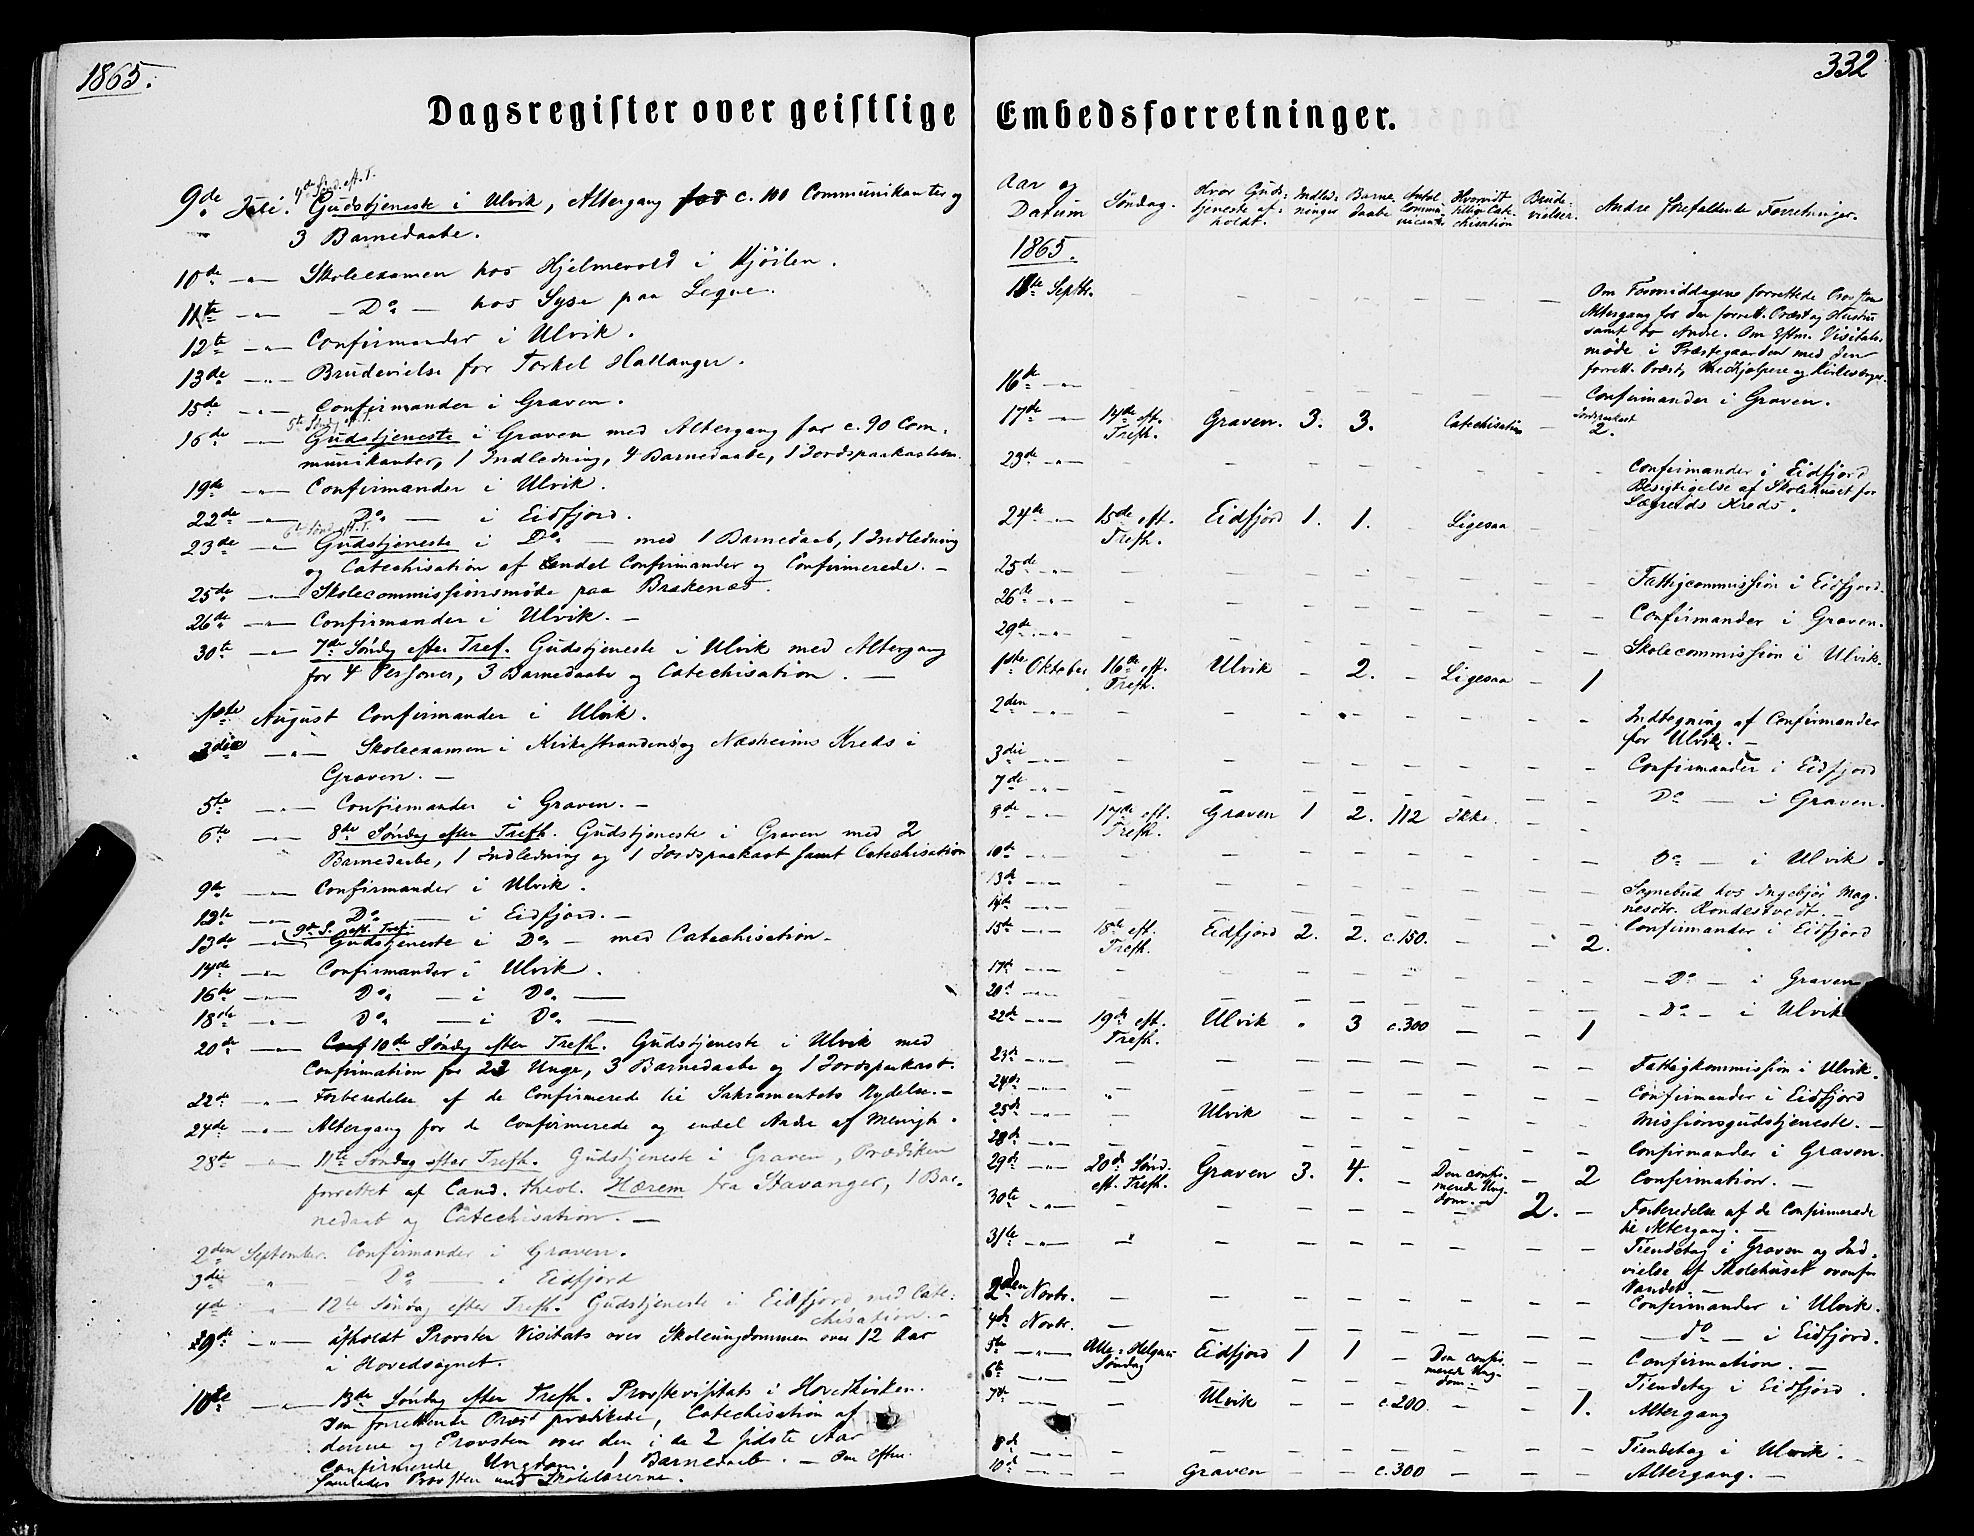 1865.
Dagsregister over geistlige
9de Juli. 4de Sønd. eft. T. Gudstjeneste i Ulvik, Altergang for c. 100 Communikanter og
3 Barnedaabe.
10de — " — Skoleexamen hos Hjelmevold i
11te — " — Do — hos Syse paa
12te — " — Confirmander i Ulvik.
13de — " — Brudevielse for Torkel Hallanger.
15de — " — Confirmander i Graven.
5te Sønd. eft. T.
16de — " — Gudstjeneste i Graven med Altergang for c. 90 Com-
munikanter, 1 Indledning, 4 Barnedaabe, 1 Jordspaakastelse.
19de — " — Confirmander i Ulvik.
22de — " — Do — i Eidfjord.
6te Sønd. eft. T.
23de — " — Gudstjeneste i Do — med 1 Barnedaab, 1 Indledning
og Catechisation af endel Confirmander og Confirmerede. —
25de — " — Skolecommissionsmøde paa Brakenæs.
26de — " — Confirmander i Ulvik. —
30te — " — 7de Søndag efter Tref. Gudstjeneste i Ulvik med Altergang
for 4 Personer, 3 Barnedaabe og Catechisation. —
1ste August Confirmander i Ulvik.
3die — " — Skoleexamen i Kirkestrandens og Næsheims Kreds i
Graven. —
5te — " — Confirmander i Graven. —
6te — " — 8de Søndag efter Trefh. Gudstjeneste i Graven med 2
Barnedaabe, 1 Indledning og 1 Jordspaakast samt Catechisation
9de — " — Confirmander i Ulvik.
12te — " — Do — i Eidfjord. —
9de S. eft. Tref.
13de — " — Gudstjeneste i Do — med Catechisation. —
14de — " — Confirmander i Ulvik.
16te — " — Do — i Do —
18de — " — Do — i Do —
20de — " — Conf 10de Søndag efter Trefh. Gudstjeneste i Ulvik med
Confirmation for 23 Unge, 3 Barnedaabe og 1 Jordspaakast.
22de — " — Forberedelse af de Confirmerede til Sakramentets Nydelse. —
24de — " — Altergang for de Confirmerede og endel Andre af Menigh.
28de — " — 11te Søndag efter Trefh. Gudstjeneste i Graven, Prædiken
forrettet af Cand. theol. Hærem fra Stavanger, 1 Bar-
nedaab og Catechisation. —
2den September. Confirmander i Graven.
3die " — Do — i Eidfjord
4de " 12te Søndag efter Trefh. Gudstjeneste i Eidfjord med Cate-
chisation. —
9de — " — afholdt Provsten Visitats over Skoleungdommen over 12 Aar
i Hovedsognet.
10de — " — 13de Søndag efter Trefh. Provstevisitats i Hovedkirken.
Den forrettende Præst prædikede, Catechisation af
denne og Provsten over den i de 2 sidste Aar
Confirmerede Ungdom. 1 Barnedaab. — Om Efterm.
samledes Provsten med Skolelærerne.
332
Embedsforretninger.
Aar og Datum Søndag. Hvor Gudstjeneste afholdt. Indledninger Barnedaabe Antal Communicanter Hvorvidt tillige Catechisation Brudevielser. Andre forefaldende Forretninger.
1865.
11te Septbr. — — — — — — — Om Formiddagen forrettede Provsten
Altergang for den forrett. Præst og Hustru
samt to Andre. Om Eftm. Visitats-
møde i Præstegaarden med den
forrett. Præst, Medhjelpere og Kirkeværger.
16de — " — — — — — — — Confirmander i Graven.
17de — " — 14de eft. Trefh. Graven. 3. 3. Catechisation — Jordspaakast 2.
23de — " — — — — — — — — Confirmander i Eidfjord
Besigtigelse af Skolehuset for
Sægreids Kreds.
24de — " — 15de eft. Trefh. Eidfjord 1. 1. — Ligesaa —
25de — " — — — — — — — — Fattigcommission i Eidfjord.
26de — " — — — — — — — — Confirmander i Graven.
29de — " — — — — — — — — Skolecommission i Ulvik.
1ste Oktober 16de eft. Trefh. Ulvik — 2. — Ligesaa — 1
2den — " — — — — — — — — Indtegning af Confirmander
for Ulvik. —
3die — " — — — — — — — — Confirmander i Eidfjord
7de — " — — — — — — — — Do — i Graven.
8de — " — 17de eft. Trefh. Graven 1 2. 112 ikke. — —
10de — " — — — — — — — — Do — i Ulvik.
13de — " — — — — — — — — Sognebud hos Ingebjør Mag-
nesdtr. Rondestvedt. —
14de — " — — — — — — — — Confirmander i Eidfjord
15de — " — 18de eft. Trefh. Eidfjord 2. 2. c. 150. — — 2.
17de — " — — — — — — — — Do — i Graven
20de — " — — — — — — — — Do — i Ulvik
22de — " — 19de eft. Trefh. Ulvik " 3 c. 300 — — 1
23de — " — — — — — — — — Fattigkommission i Ulvik.
24de — " — — — — — — — — Confirmander i Eidfjord
25de — " — — Ulvik — — — — — — Missionsgudstjeneste. —
28de — " — — — — — — — — Confirmander i Graven.
29de — " — 20de Sønd. eft. Trefh. Graven 3. 4. — Den confirmerede Ungdom. — 2 Confirmation. —
30te — " — — — — — — — 2. — Forberedelse af de Confirmerede
til Altergang. —
31te — " — " — — — — — — Tiendetag i Graven og Ind-
vielse af Skolehuset ovenfor
Vandet. —
2den Novbr. — — — — — — — — Confirmander i Ulvik.
4de Novbr. — — — — — — — — do — i Eidfjord.
5te — " — Alle-Helgens Søndag Eidfjord 1 1 — Den confirmerede Ungdom. — — Confirmation. —
6te — " — — — — — — — — Tiendetag i Eidfjord.
7de — " — — Ulvik — — c. 200. — — 1. Altergang
8de — " — — — — — — — — Tiendetag i Ulvik. —
10de — " — — Graven — — c. 300 — — — Altergang. —